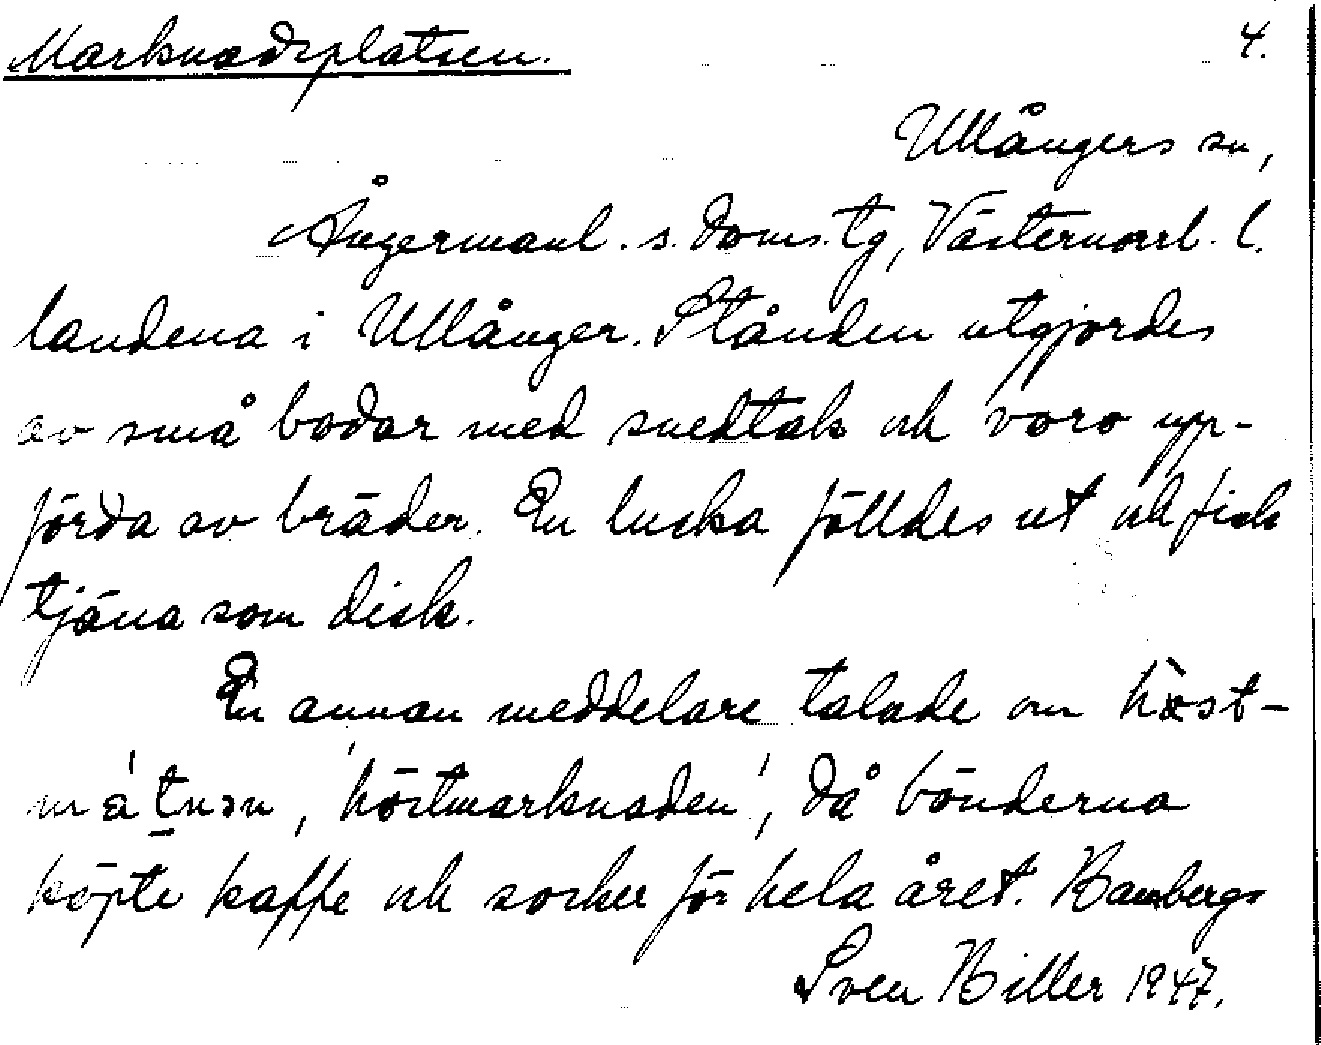 Marknadsplatsen. 4.
Ullångers sn,
Ångermanl. s. doms. tg, Västernorrl. l.
landena i Ullånger. Stånden utgjordes
av små bodar med snedtak och voro upp-
förda av bräder. En lucka fälldes ut och fick
tjäna som disk.
En annan meddelare talade om
'höstmarknaden', då bönderna
köpte kaffe och socker för hela året.
Sven Biller 1947.